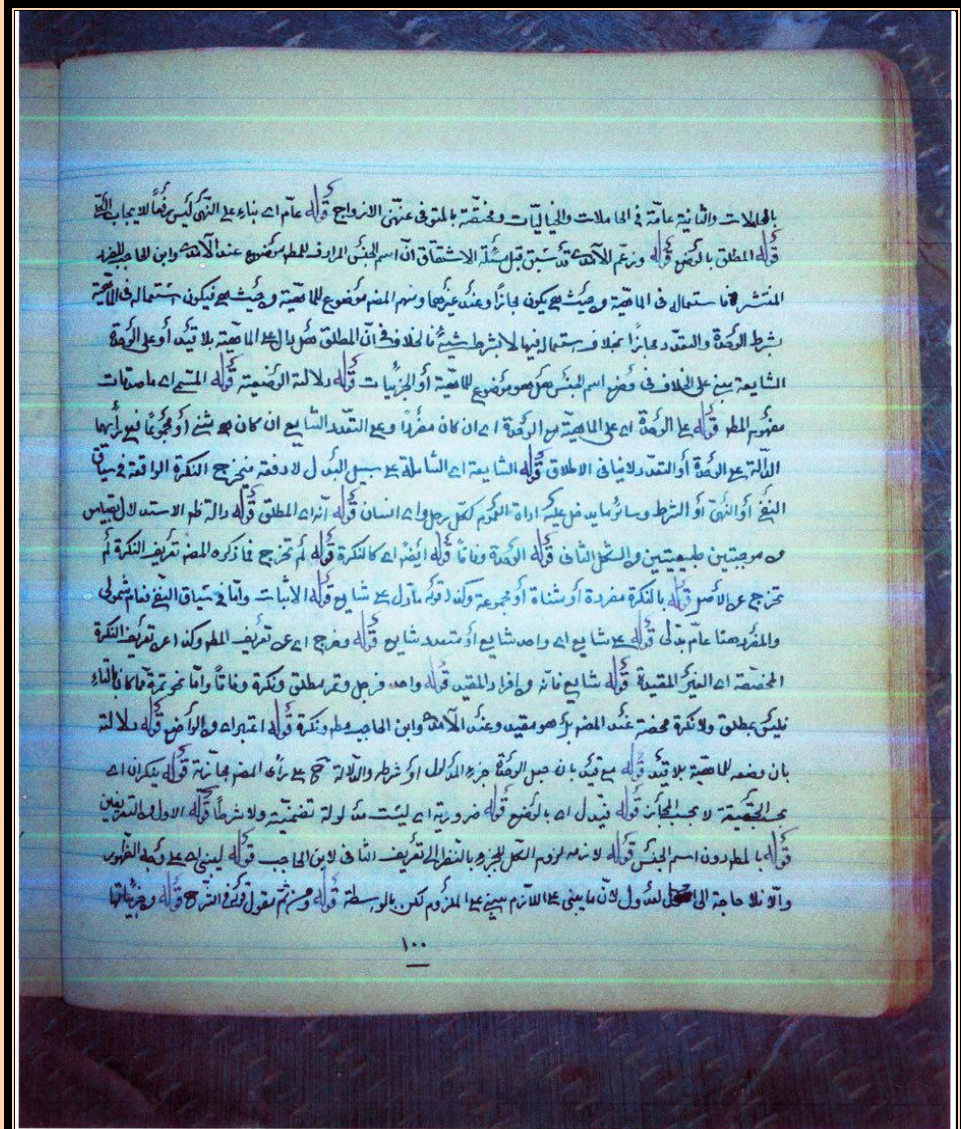 بالحاملات والثانية عامّة في الحاملات والحياليّات ومختصّة بالمتوفى عنهنّ الازواج قوله عامّ اى بناء على النّهى ليس رفعًا لايجاب
قوله المطلق بالوضع قوله وزعم الآمدى قد سبق قبل مسئلة الاشتقاق انّ اسم الجنس المرادف للمط موضوع عند الآمدى وابن الحاجب للفرد
المنتشر فاستعماله في الماهيّة من حيث هى يكون مجازًا وعند غيرهما ومنهم المصنف موضوع للماهيّة من حيث هى فيكون استعماله في الماهيّة
بشرط الوحدة والتعدّد مجازًا بخلاف استعماله فيها لا بشرط شئ فالخلاف في انّ المطلق هل دال على الماهيّة بلا قيد أو على الوحدة
الشايعة مبنى على الخلاف في وضع اسم الجنس هل هو موضوع للماهيّة أو الجزئيات قوله دلالة الوضعيّة قوله المسمى اى ماصدقات
مفهوم المط قوله على الوحدة اى على الماهيّة مع الوحدة اى ان كان مفردًا وعلى التعدّد الشايع ان كان مثنى أو مجموعًا
الدّالة على الوحدة أو التعدّد لا ينافى الاطلاق قوله الشايعة اى الشاملة على سبيل البدل لا دفعة فيخرج النكرة الواقعة في سياق
النفى أو النّهى أو الشرط وسائر ما يدخل عليه اداة العموم ككل رجل و اى انسان قوله انّه اى المطلق قوله دالة نظم الاستدلال بقياس
من موجبتين طبيعيتين من الشكل الثانى قوله الوحدة وفاقًا قوله ايضًا اى كالنكرة قوله لم تخرج فما ذكره المصنف تعريف النكرة لم
تخرج عن الأصل قوله بالنكرة مفردة أو مثناة أو مجموعة وكذا قوله مادل على شايع قوله الاثبات وامّا في سياق النفى فعام شمولى
والمفرد هنا عامّ بدلى قوله على شايع اى واحد شايع أو متعدد شايع قوله وخرج اى عن تعريف المط وكذا عن تعريف النكرة
المحضة اى الغير المقيدة قوله شايع فانّه من افراد المقيد قوله واحد فرجل وتمر مطلق ونكرة وفاقًا وامّا نحو تمرة فما كان بالتاء
فليس بمطلق ولا نكرة محضة عند المصنف بل هو مقيد وعند الآمدى وابن الحاجب مط ونكرة قوله اعتبر اى الواضع قوله دلالة
بان وضعه للماهيّة بلا قيد قوله مع قيد بان جعل الوحدة جزء المدلول أو شرطه والدّلالة ح على رأى المصنف مجازيّة قوله ينكران اى
بحسب الحقيقة لا بحسب المجاز قوله فيدل اى بالوضع قوله ضرورية اى ليست مدلولة تضمنيّة ولا شرطًا قوله الاول من التعريفين
قوله بالمط دون اسم الجنس قوله لازمه لزوم الكل للجزء بالنظر الى تعريف الثانى لابن الحاجب قوله ليبنى اى على وجه الظهور
والّا فلا حاجة الى لعدول لانّ ما يبنى على اللازم يبنى على الملزوم لكن بالوسطة قوله ومن ثمّ مقول قولى في الشرح قوله وجزئياتها
١٠٠